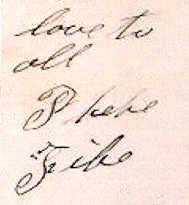 love to
all
Phebe
Fibe